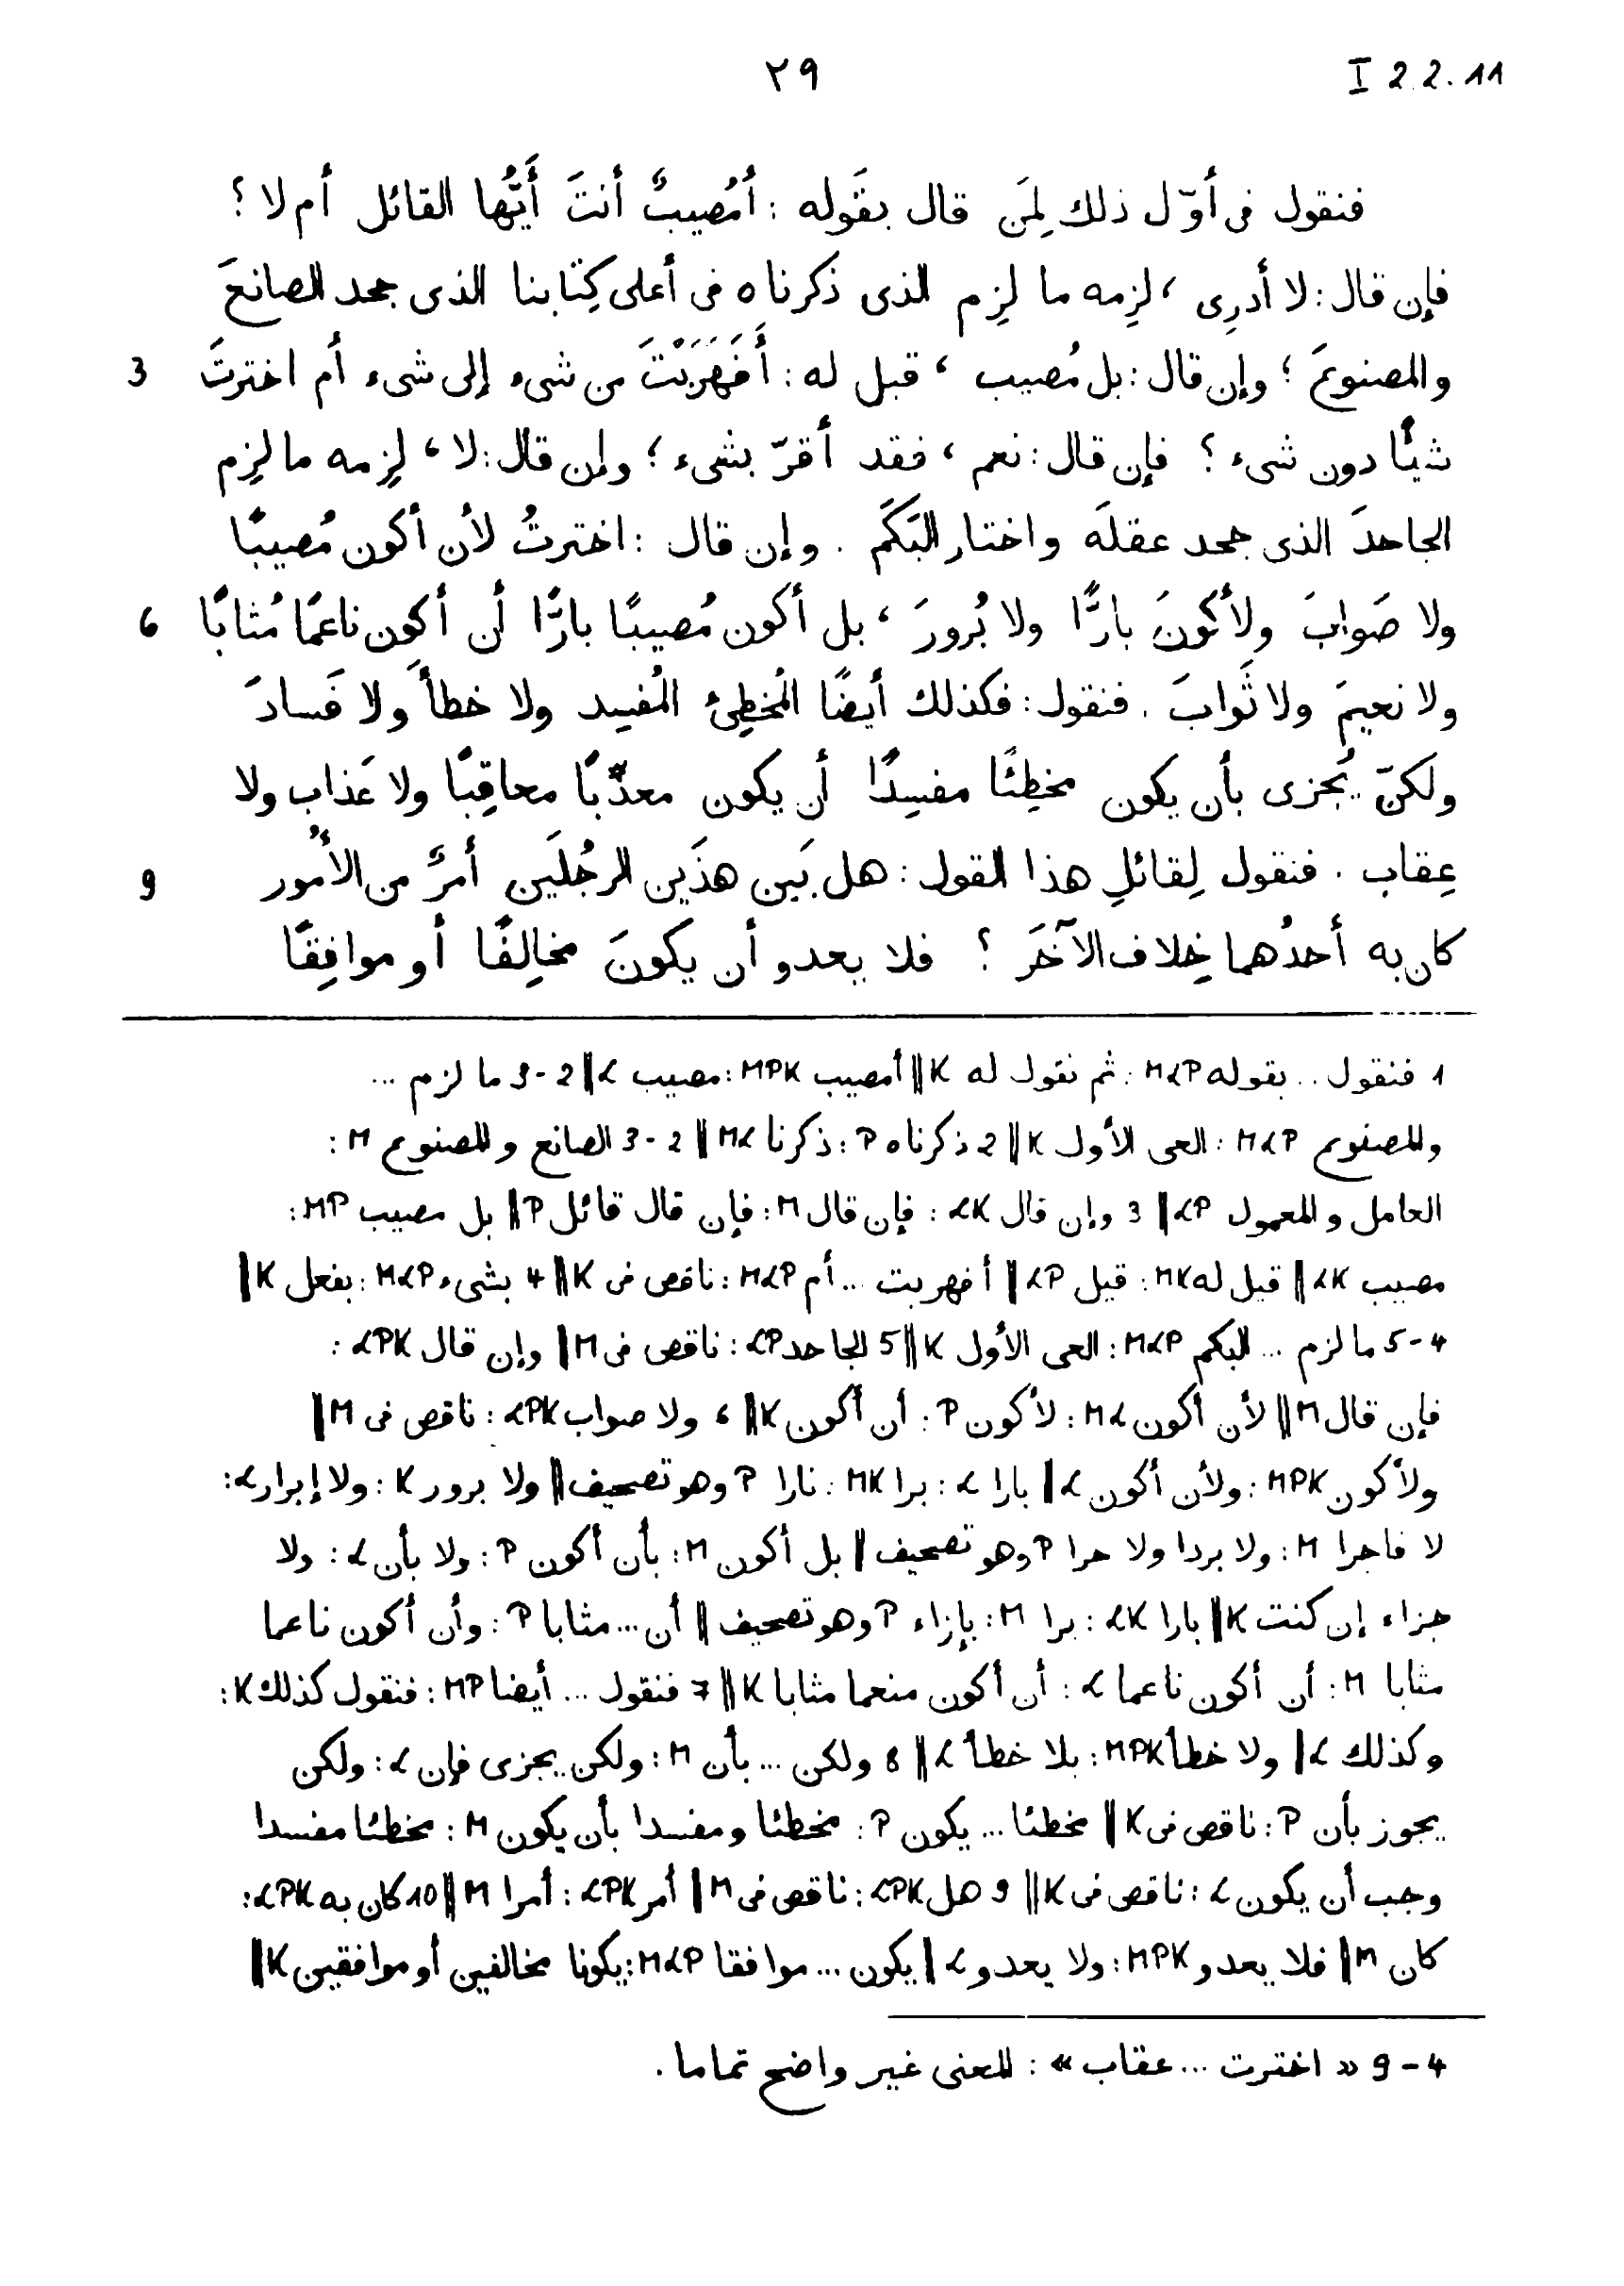 I 2.2.11
٢٩
فنقول فى أوّل ذلك لِمَن قال بقَوله : أمُصيبٌ أنتَ أَيُّها القائل أم لا ؟
فإن قال : لا أدرِى ، لزِمه ما لزِم الذى ذكرناه فى أعلى كِتابنا الذى جحد الصانعَ
والمصنوعَ ؛ وإن قال : بل مُصيب ، قيل له : أَفَهَرَبْتَ من شىء إلى شىء أَم اخترتَ 3
شيئًا دون شىء ؟ فإن قال : نعم ، فقد أقرّ بشىء ؛ وإن قال : لا ، لزِمه ما لزِم
الجاحدَ الذى جحد عقلَه واختار البَكَم . وإن قال : اخترتُ لأن أكون مُصيبًا
ولا صَوابَ ولأكونَ بارًّا ولا بُرورَ ، بل أكون مُصيبًا بارًّا أن أكون ناعمًا مُثابًا 6
ولا نعيمَ ولا ثَوابَ . فنقول : فكذلك أيضًا المُخطِئ المُفسِد ولا خطأَ ولا فَسادَ
ولكنّ يُجزى بأن يكون مخطِئًا مفسِدًا أن يكون معذَّبًا معاقِبًا ولا عَذاب ولا
عِقاب . فنقول لِقائلِ هذا القول : هل بَين هذَين الرجُلَين أمرٌ من الأُمور 9
كان به أحدُهما خِلاف الآخَر ؟ فلا يعدو أن يكونَ مخالِفًا أو موافِقًا
1 فنقول .. بقوله MLP : ثم نقول له K || أمصيب MPK : مصيب L || 2-3 ما لزم ...
والمصنوع MLP : العى الأول K || 2 ذكرناه P : ذكرنا ML || 2-3 الصانع والمصنوع M :
العامل والمعمول LP || 3 وإن قال LK : فإن قال M : فإن قال قائل P || بل مصيب MP :
مصيب LK || قيل له MK : قيل LP || أفهربت ... أم MLP : ناقص فى K || 4 بشىء MLP : بفعل K ||
4-5 ما لزم ... البكم MLP : العى الأول K || 5 الجاحد LP : ناقص فى M || وإن قال LPK :
فإن قال M || لأن أكون ML : لأكون P : أن أكون K || 6 ولا صواب LPK : ناقص فى M ||
ولأكون MPK : ولأن أكون L || بارا L : برا MK : نارا P وهو تصحيف || ولا برور K : ولا إبرار L :
لا فاجرا M : ولا بردا ولا حرا P وهو تصحيف || بل أكون M : بأن أكون P : ولا بأن L : ولا
جزاء إن كنت K || بارا LK : برا M : بإزاء P وهو تصحيف || أن ... مثابا P : وأن أكون ناعما
مثابا M : أن أكون ناعما L : أن أكون منعما مثابا K || 7 فنقول ... أيضا MP : فنقول كذلك K :
وكذلك L || ولا خطأ MPK : بلا خطأ L || 8 ولكن ... بأن M : ولكن يجزى فإن L : ولكن
يجوز بأن P : ناقص فى K || مخطئا ... يكون P : مخطئا ومفسدا بأن يكون M : مخطئا مفسدا
وجب أن يكون L : ناقص فى K || 9 هل LPK : ناقص فى M || أمر LPK : أمرا M || 10 كان به LPK :
كان M || فلا يعدو MPK : ولا يعدو L || يكون ... موافقا MLP : يكونا مخالفين أو موافقين K ||
4-9 « اخترت ... عقاب » : المعنى غير واضح تماما .